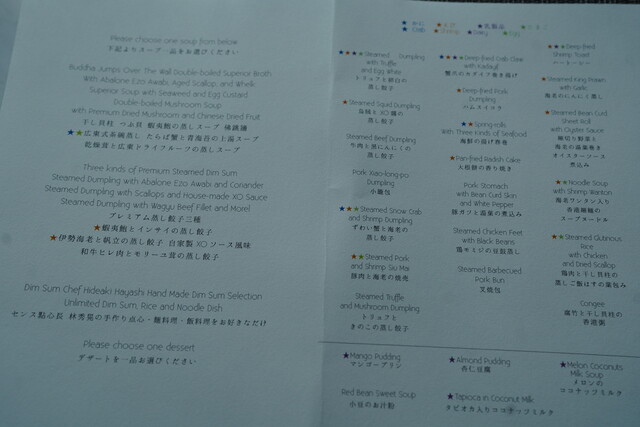 Please choose one soup from below
下記よりスープ一品をお選びください
Buddha Jumps Over The Wall Double-boiled Superior Broth
with Abalone Ezo Awabi, Aged Scallop, and Whelk
Superior Soup with Seaweed and Egg Custard
Double-boiled Mushroom Soup
with Premium Dried Mushroom and Chinese Dried Fruit
干し貝柱 つぶ貝 蝦夷鮑の蒸しスープ 佛跳牆
乾燥茸と広東ドライフルーツの蒸しスープ
Three kinds of Premium Steamed Dim Sum
Steamed Dumpling with Abalone Ezo Awabi and Coriander
Steamed Dumpling with Scallops and House-made XO Sauce
Steamed Dumpling with Wagyu Beef Fillet and Morel
プレミアム蒸し餃子三種
★蝦夷鮑とインサイの蒸し餃子
★伊勢海老と帆立の蒸し餃子 自家製XOソース風味
和牛ヒレ肉とモリーユ茸の蒸し餃子
Dim Sum Chef Hideaki Hayashi Hand Made Dim Sum Selection
Unlimited Dim Sum, Rice and Noodle Dish
センス點心長 林秀晃の手作り点心・麺料理・飯料理をお好きなだけ
Please choose one dessert
デザートを一品お選びください
★★★★Steamed Dumpling
with Truffle
and Egg White
トリュフと卵白の
蒸し餃子
★Steamed Squid Dumpling
烏賊とXO醤の
蒸し餃子
Steamed Beef Dumpling
牛肉と黒にんにくの
蒸し餃子
Pork Xiao-long-po
Dumpling
小籠包
★★★Steamed Snow Crab
and Shrimp Dumpling
ずわい蟹と海老の
蒸し餃子
★★Steamed Pork
and Shrimp Siu Mai
豚肉と海老の焼売
Steamed Truffle
and Mushroom Dumpling
トリュフと
きのこの蒸し餃子
★★★★Deep-fried Crab Claw
with Kadayif
蟹爪のカダイフ巻き揚げ
★Deep-fried Pork
Dumpling
ハムスイコク
★★Spring-rolls
with Three kinds of Seafood
海鮮の揚げ春巻
★Pan-fried Radish Cake
大根餅の香り焼き
Pork Stomach
with Bean Curd Skin
and White Pepper
豚ガツと湯葉の煮込み
Steamed Chicken Feet
with Black Beans
鶏モミジの豆豉蒸し
Steamed Barbecued
Pork Bun
叉焼包
★★★Deep-fried
Shrimp Toast
ハートーシー
★Steamed King Prawn
with Garlic
海老のにんにく蒸し
★Steamed Bean Curd
Sheet Roll
with Oyster Sauce
海老の湯葉巻き
オイスターソース
煮込み
★★Noodle Soup
with Shrimp Wanton
海老ワンタン入り
香港細麺の
スープヌードル
★★Steamed Glutinous
Rice
with Chicken
and Dried Scallop
鶏肉と干し貝柱の
蒸しご飯はすの葉包み
Congee
腐竹と干し貝柱の
香港粥
★Mango Pudding
マンゴープリン
★Almond Pudding
杏仁豆腐
★Melon Coconuts
Milk Soup
メロンの
ココナッツミルク
Red Bean Sweet Soup
小豆のお汁粉
★Tapioca in Coconut Milk
タピオカ入りココナッツミルク